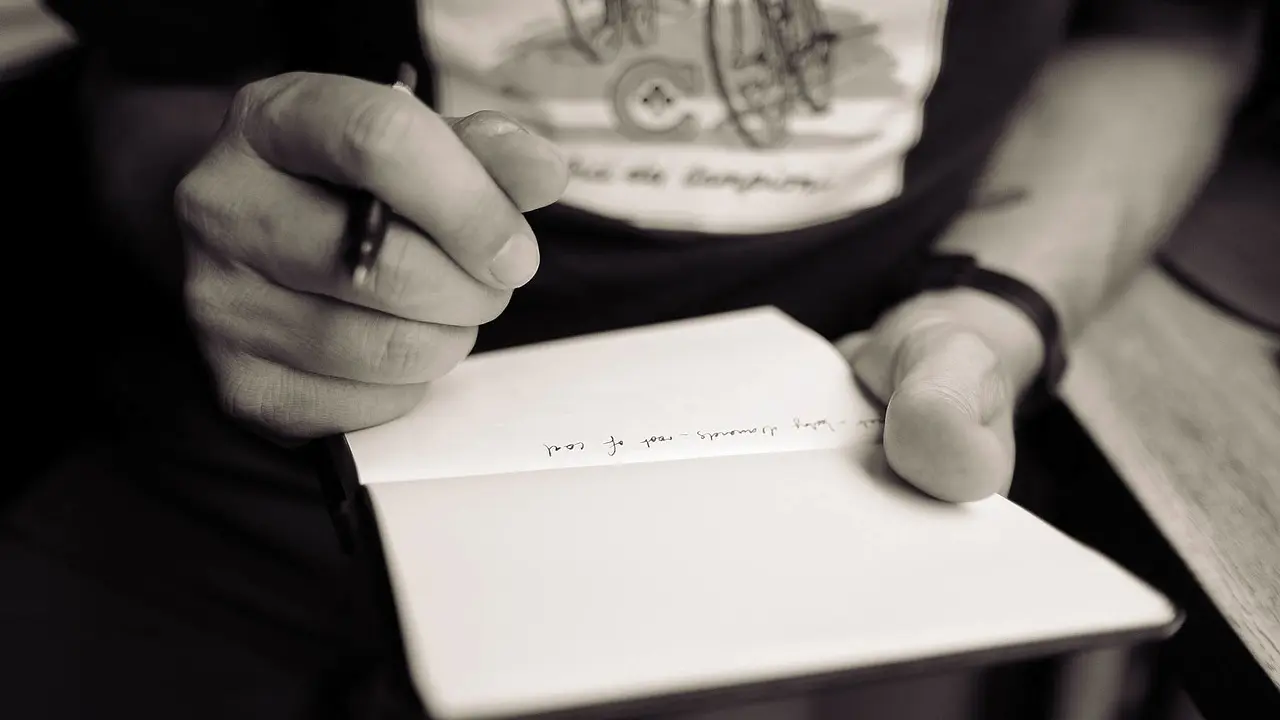 de Campioni
baby diamonds - root of coal